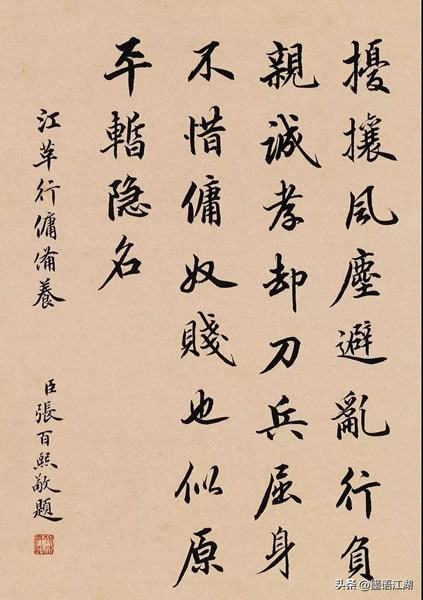 擾攘風塵避亂行負
親誠孝却刀兵屈身
不惜傭奴賤也似原
平暫隐名
江革行傭備養
臣張百熙敬題
头条@墨语江湖